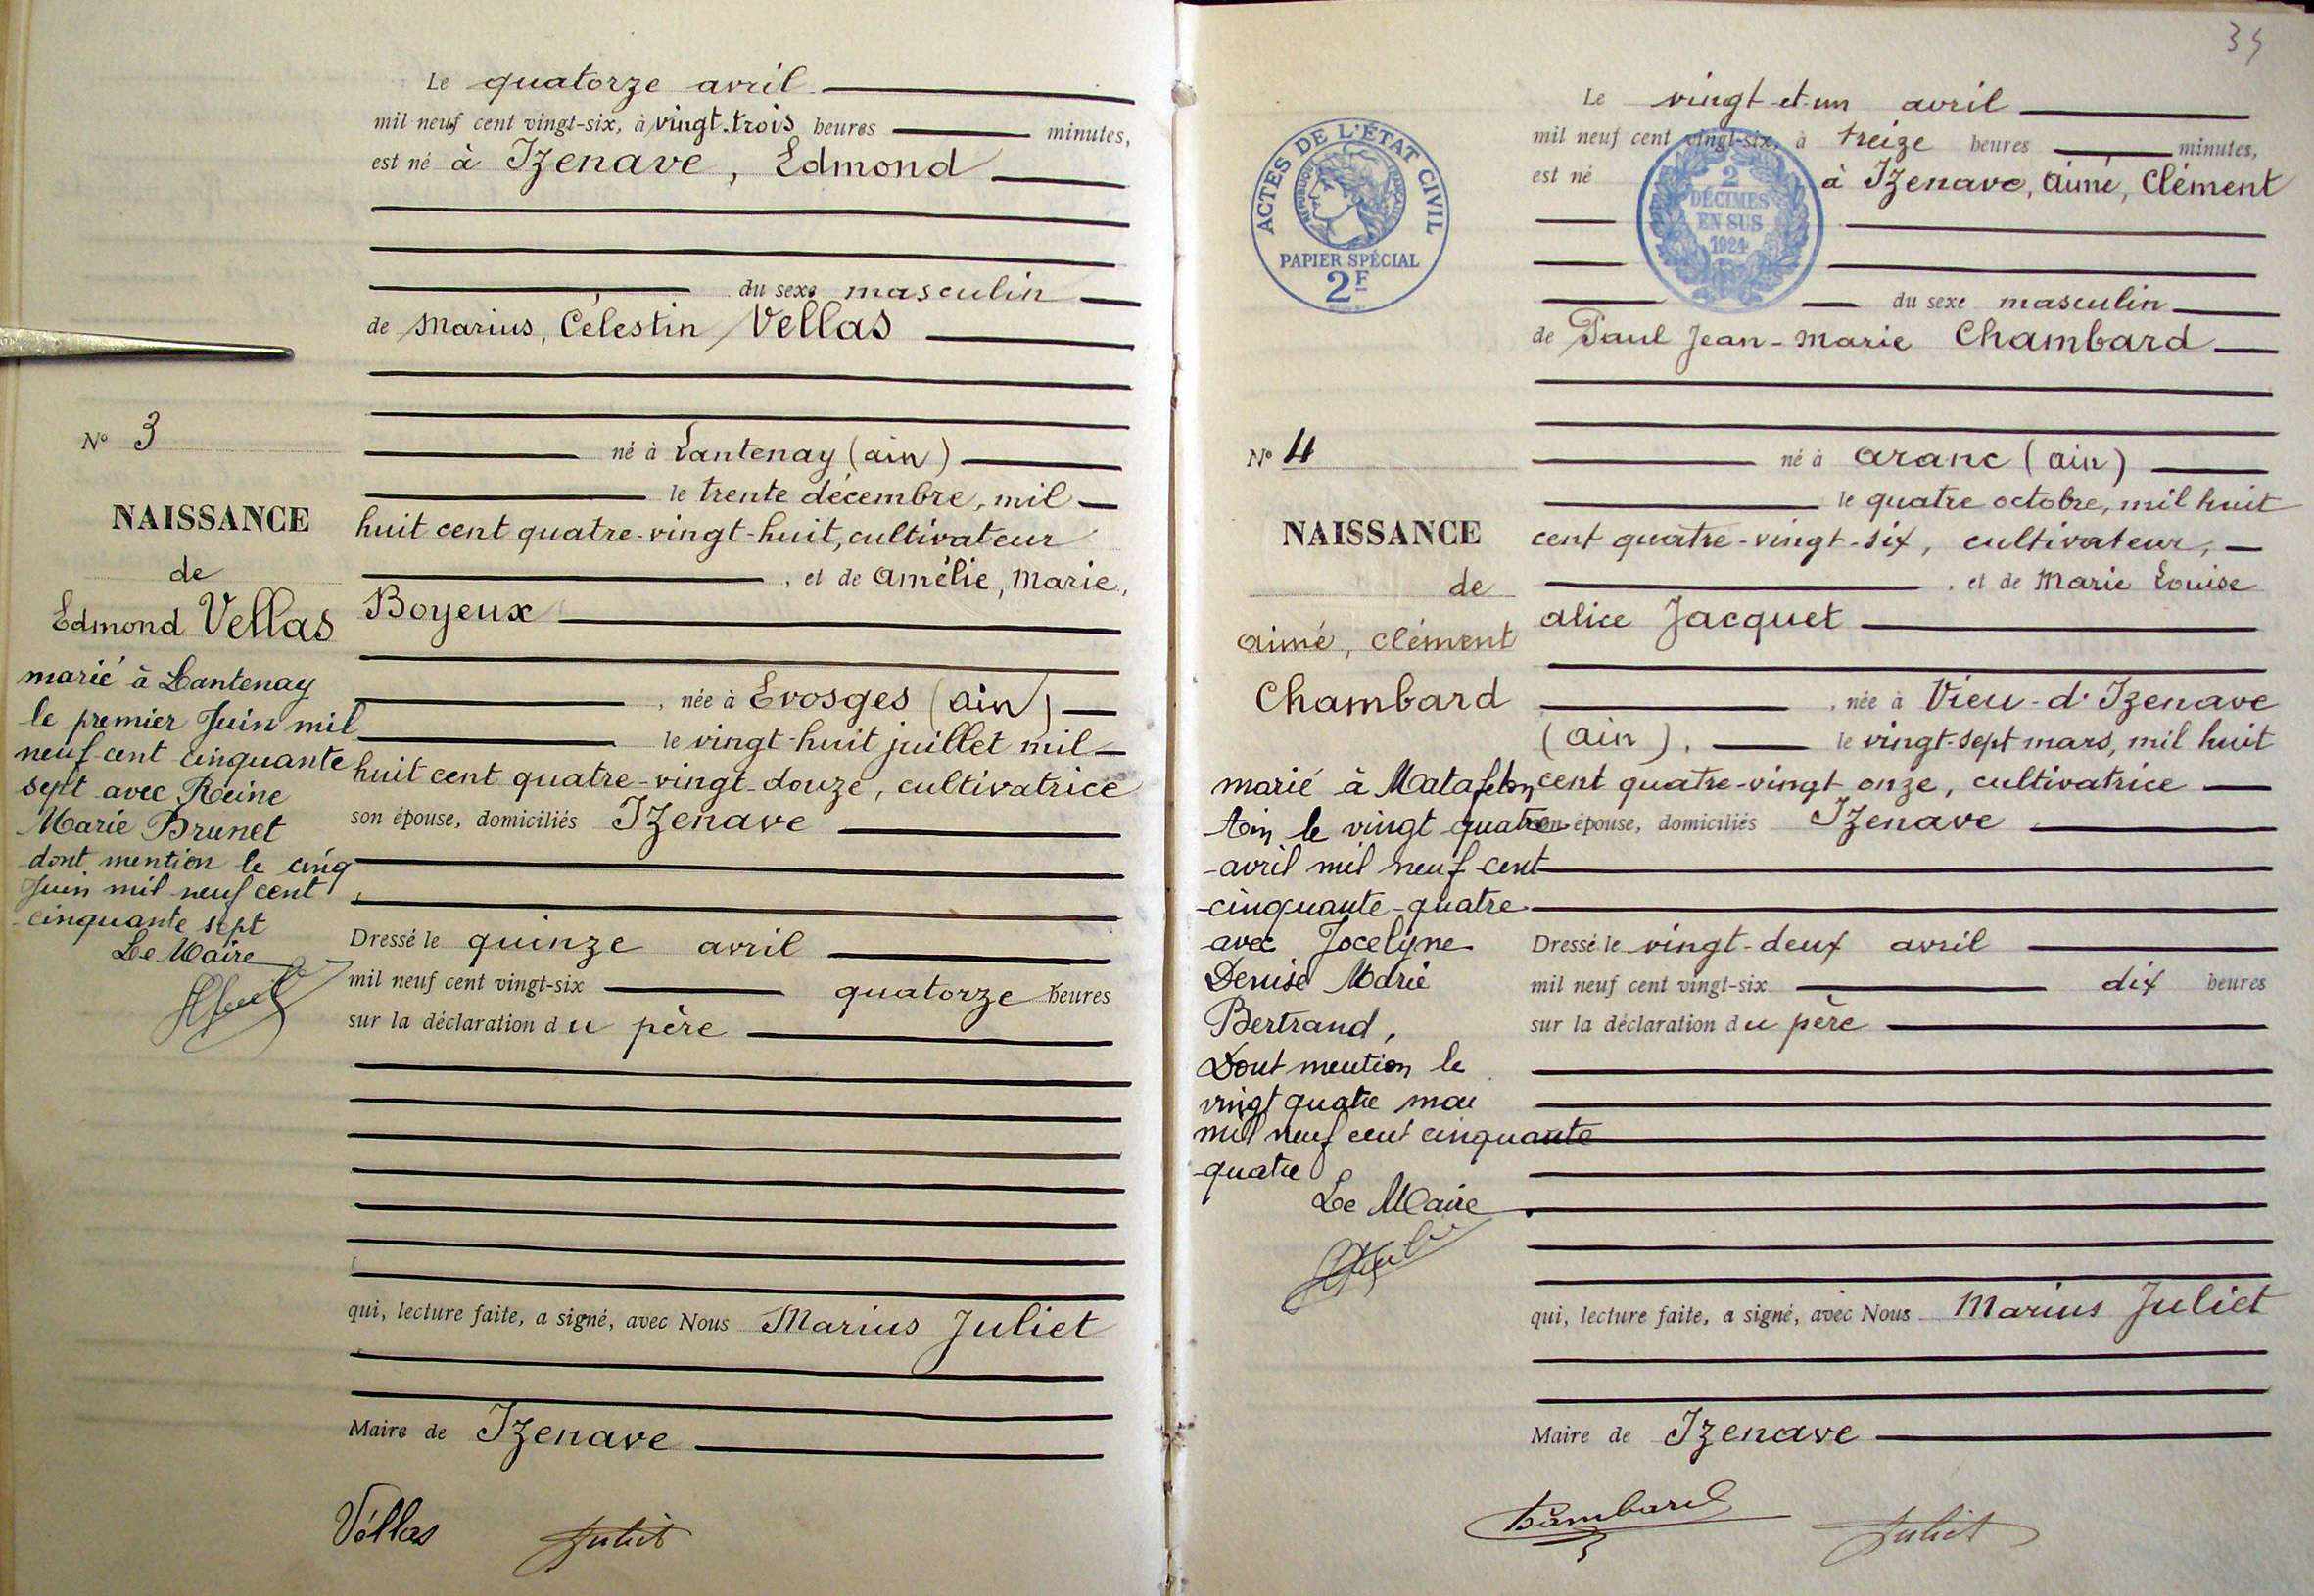 Le quatorze avril
mil neuf cent vingt-six, à vingt-trois heures minutes,
est né à Izenave, Edmond
du sexe masculin
de Marius, Célestin Vellas
né à Lantenay (Ain)
le trente décembre, mil
huit cent quatre-vingt-huit, cultivateur
, et de Amélie, Marie,
Boyeux
, née à Evosges (Ain)
le vingt-huit juillet mil
huit cent quatre-vingt-douze, cultivatrice
son épouse, domiciliés Izenave
Dressé le quinze avril
mil neuf cent vingt-six quatorze heures
sur la déclaration du père
qui, lecture faite, a signé, avec Nous Marius Juliet
Maire de Izenave
Vellas Juliet
N° 3
NAISSANCE
de
Edmond Vellas
marié à Lantenay
le premier Juin mil
neuf cent cinquante
sept avec Reine
Marie Brunet
dont mention le cinq
Juin mil neuf cent
cinquante sept
Le Maire
ACTES DE L'ÉTAT CIVIL
RÉPUBLIQUE FRANÇAISE
PAPIER SPÉCIAL
2F
2
DÉCIMES
EN SUS
1924
Le vingt-et-un avril
mil neuf cent vingt-six, à treize heures minutes,
est né à Izenave, Aimé, Clément
du sexe masculin
de Paul Jean-Marie Chambard
né à Aranc (Ain)
le quatre octobre, mil huit
cent quatre-vingt-six, cultivateur,
, et de Marie Louise
Alice Jacquet
, née à Vieu-d'Izenave
(Ain), le vingt-sept mars, mil huit
cent quatre-vingt onze, cultivatrice
son épouse, domiciliés Izenave
Dressé le vingt-deux avril
mil neuf cent vingt-six dix heures
sur la déclaration du père
qui, lecture faite, a signé, avec Nous Marius Juliet
Maire de Izenave
Chambard Juliet
N° 4
NAISSANCE
de
Aimé, Clément
Chambard
marié à Matafelon
Ain le vingt quatre
avril mil neuf cent
cinquante-quatre
avec Jocelyne
Denise Marie
Bertrand,
Dont mention le
vingt quatre mai
mil neuf cent cinquante
quatre
Le Maire